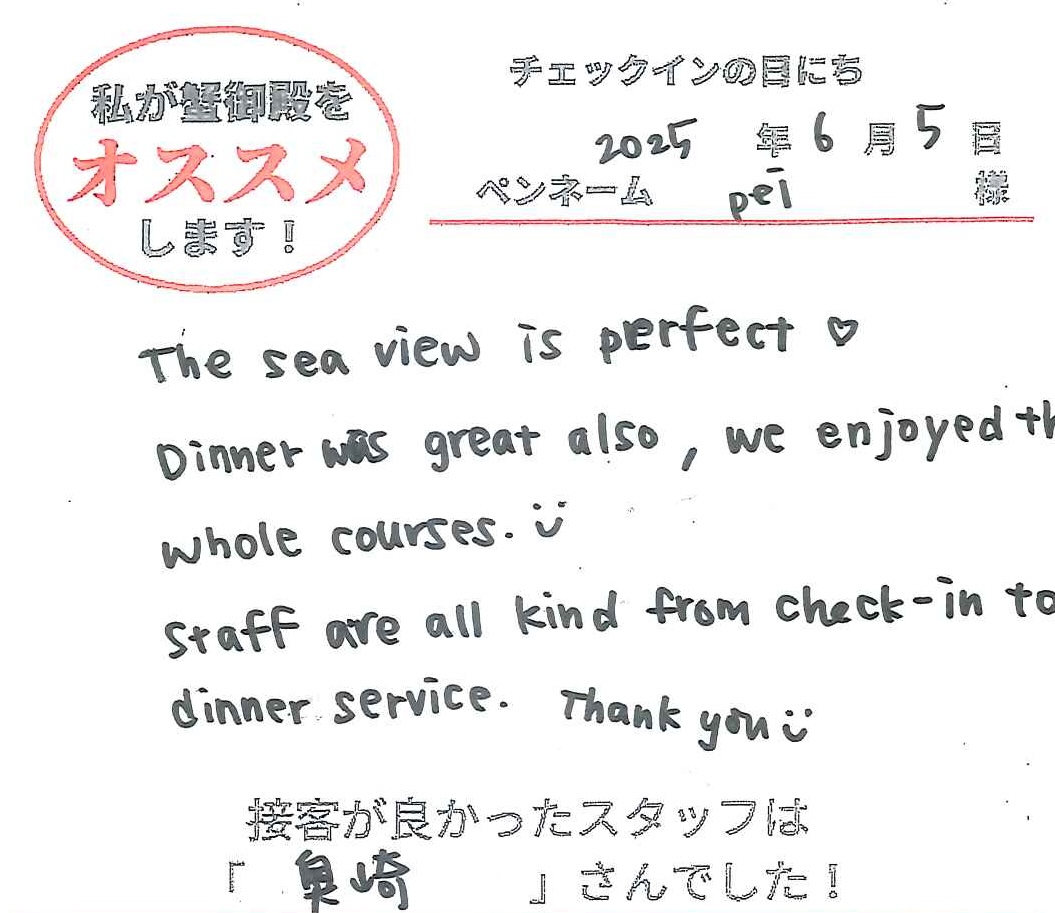 私が蟹御殿を
オススメ
します！
チェックインの日にち
2025 年 6 月 5 日
ペンネーム pei 様
The sea view is perfect ♡
Dinner was great also, we enjoyed th
whole courses. ü
Staff are all kind from check-in to
dinner service. Thank you ü
接客が良かったスタッフは
「 崎 」さんでした！